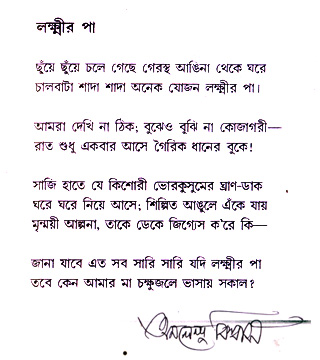 লক্ষ্মীর পা
ছুঁয়ে ছুঁয়ে চলে গেছে গেরস্থ আঙিনা থেকে ঘরে
চালবাটা শাদা শাদা অনেক যোজন লক্ষ্মীর পা।
আমরা দেখি না ঠিক; বুঝেও বুঝি না কোজাগরী—
রাত শুধু একবার আসে গৈরিক ধানের বুকে!
সাজি হাতে যে কিশোরী ভোরকুসুমের ঘ্রাণ-ডাক
ঘরে ঘরে নিয়ে আসে; শিল্পিত আঙুলে এঁকে যায়
মৃন্ময়ী আল্পনা, তাকে ডেকে জিগ্যেস ক'রে কি—
জানা যাবে এত সব সারি সারি যদি লক্ষ্মীর পা
তবে কেন আমার মা চক্ষুজলে ভাসায় সকাল?
বিশ্বাস